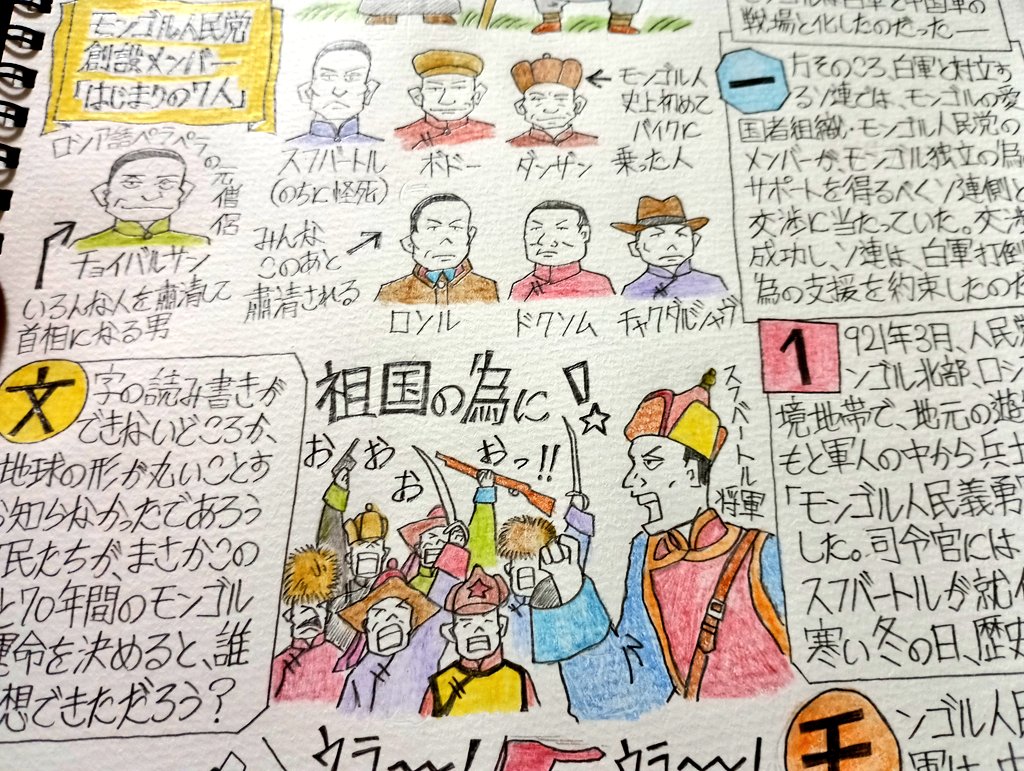 モンゴル人民党
創設メンバー
「はじまりの7人」
ロシア語ペラペラの元僧侶
チョイバルサン
いろんな人を粛清して
首相になる男
スフバートル
(のちに怪死)
ボドー
ダンザン
← モンゴル人
史上初めて
バイクに
乗った人
みんな
このあと
粛清される
ロソル
ドクソム
チャクダルジャヴ
戦場と化したのだったー
一
方そのころ、白軍と対立す
るソ連では、モンゴルの愛
国者組織・モンゴル人民党の
メンバーが、モンゴル独立の為
サポートを得るべくソ連側と
交渉に当たっていた。交渉
成功し、ソ連は、白軍打倒
為の支援を約束したのだ
1
921年3月、人民党
ンゴル北部、ロシ
境地帯で、地元の遊
もと軍人の中から兵士
「モンゴル人民義勇
した。司令官には
スフバートルが就
寒い冬の日、歴史
文
字の読み書きが
できないどころか、
地球の形が丸いことす
知らなかったであろう
民たちが、まさかこの
と70年間のモンゴル
運命を決めると、誰
想できただろう?
祖国の為に!☆
おおおおっ!!
スフバートル将軍
ウラ〜〜!
ウラ〜〜!
モ
ンゴル人民
軍は、中